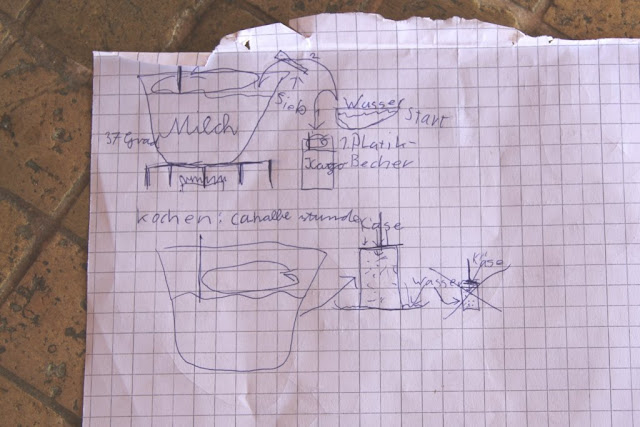 2
Sieb
Wasser
Start
Milch
37 Grad
1. Plastik-
Becher
kochen: ca halbe stunde
Käse
Wasser
Käse